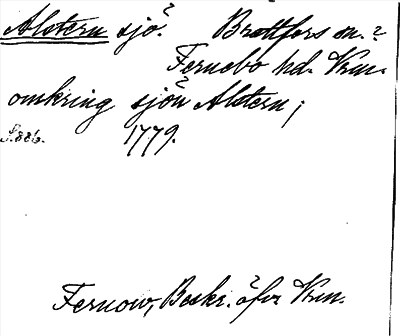 Alstern sjö? Brattfors sn.?
Fernebo hd. Vrm.
omkring sjön Alstern;
S. 886. 1779.
Fernow, Beskr. öfver Vrm.